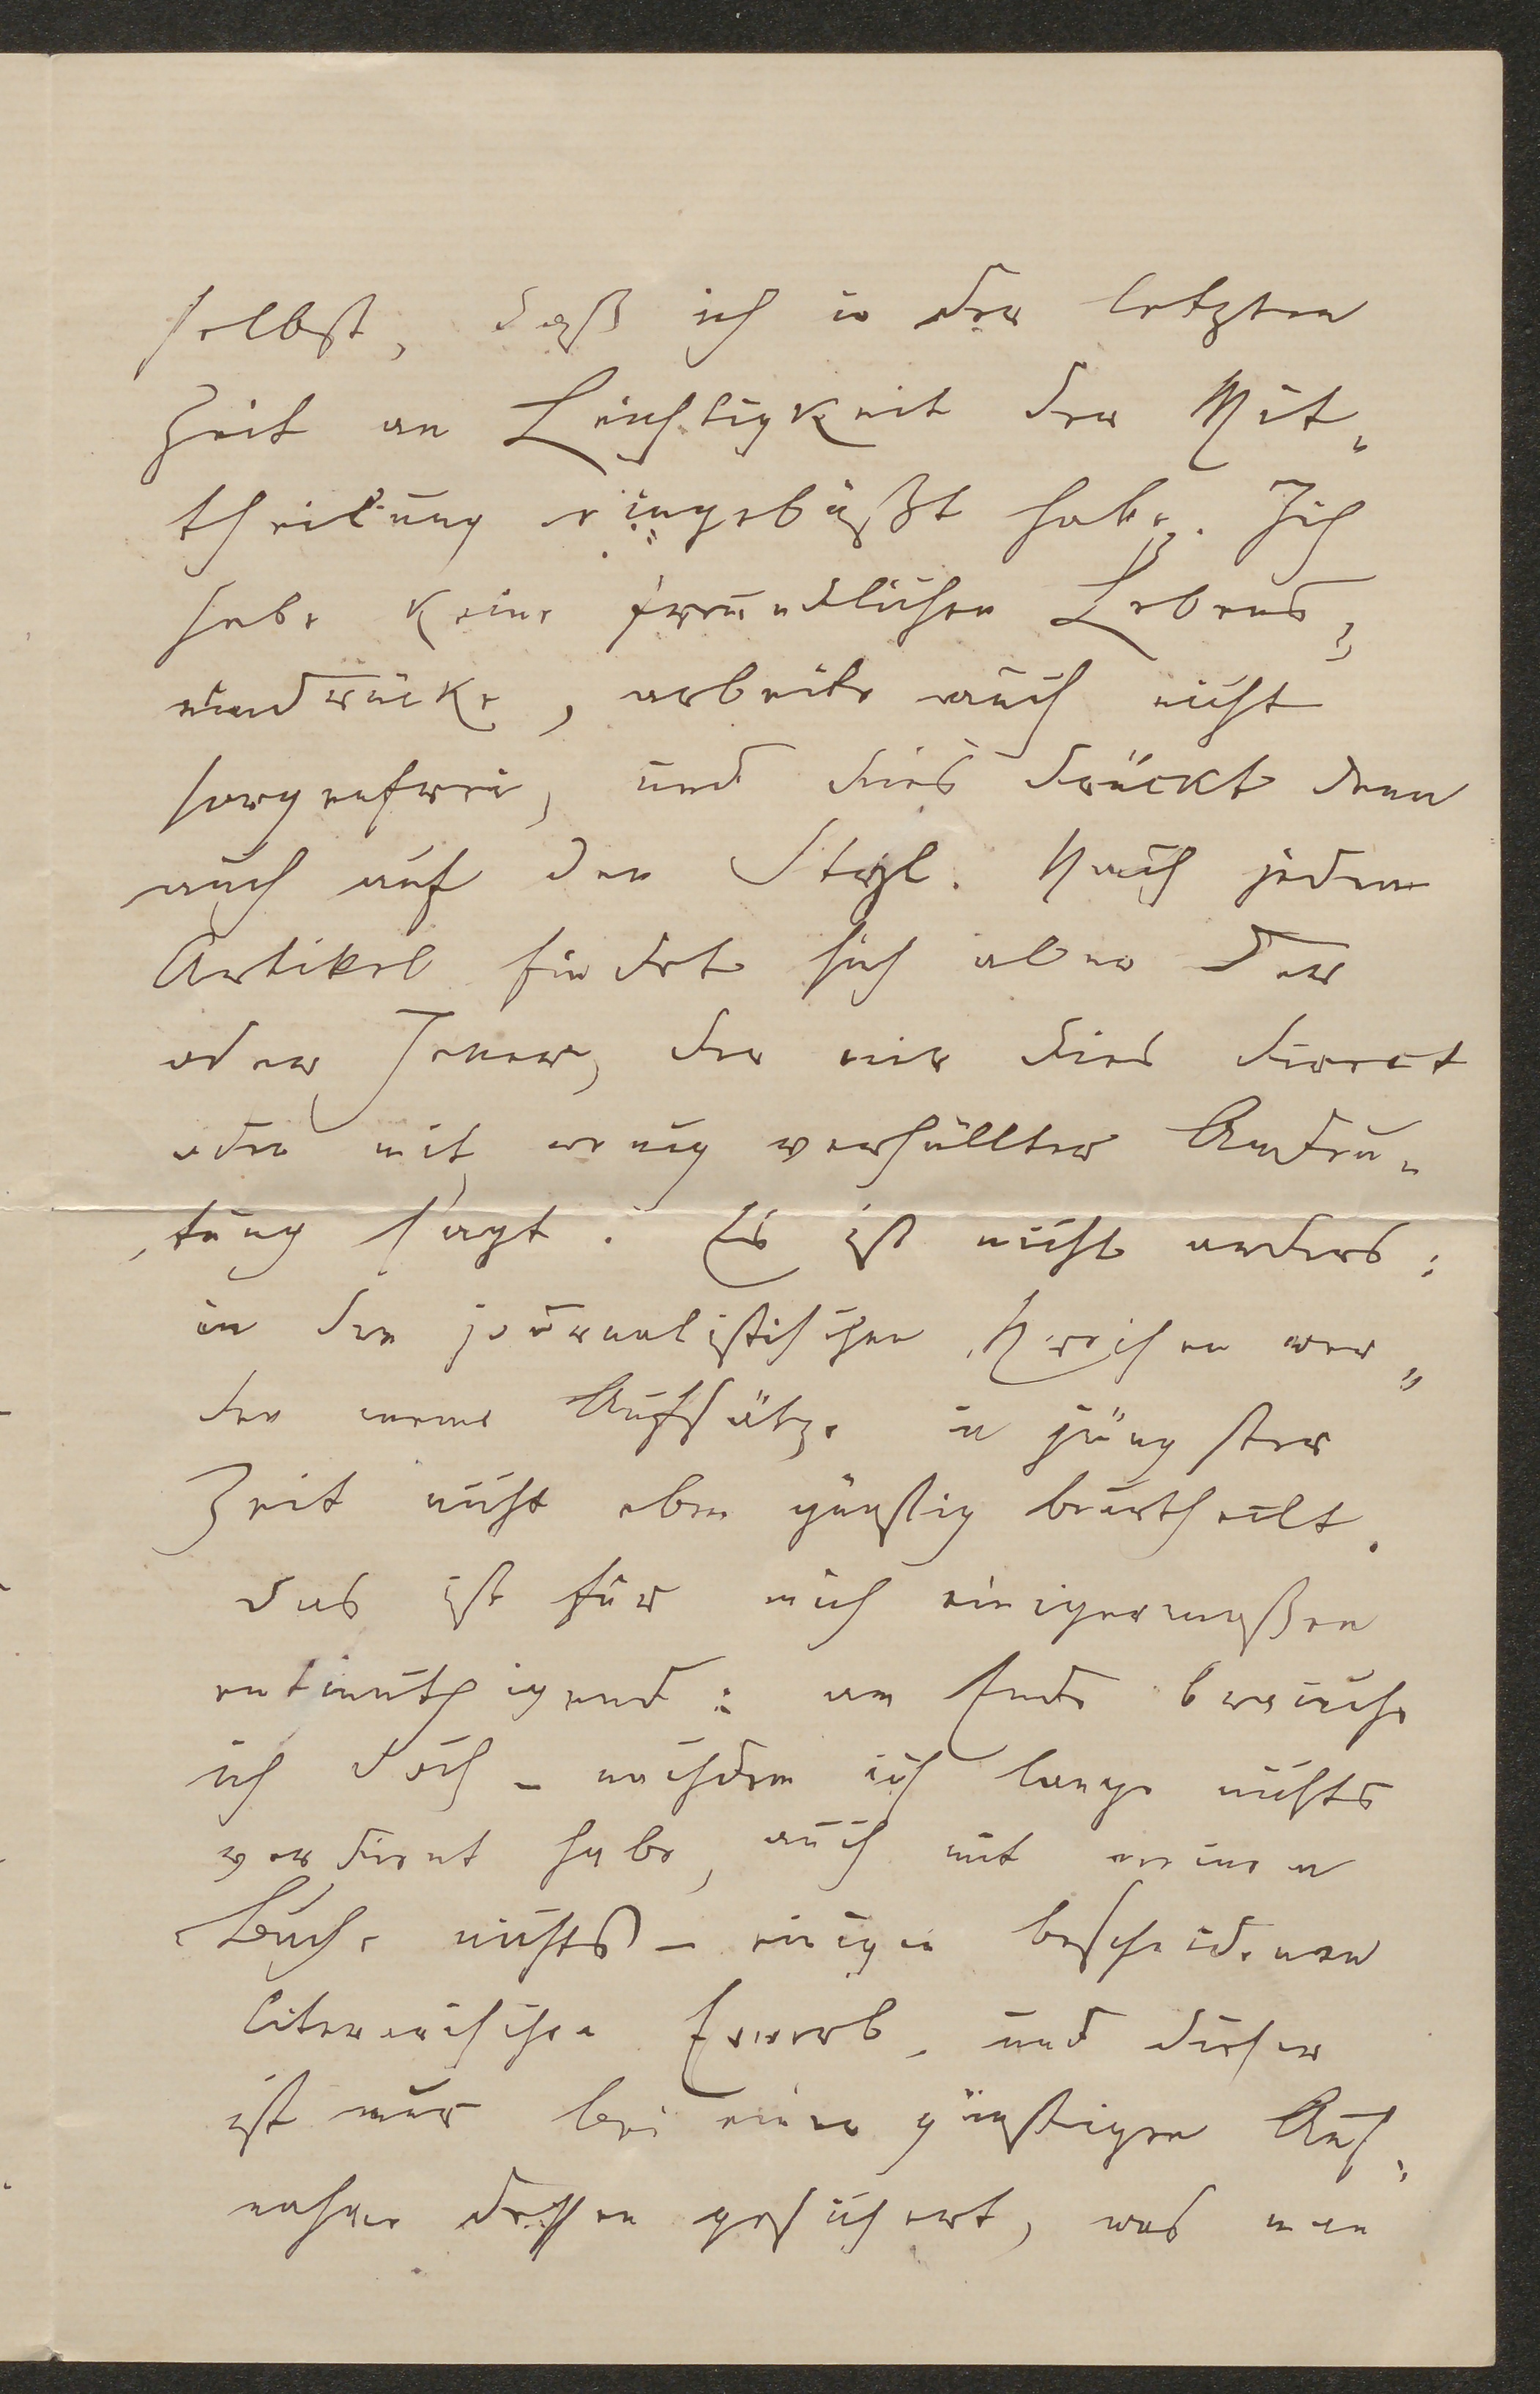 selbst, daß ich in der letzten
Zeit an Leichtigkeit der Mit„
theilung eingebüßt habe. Ich
habe keine freundlichen Lebens„
eindrücke, arbeite auch nicht
sorgenfrei, und dies drückt denn
auch auf den Styl. Nach jedem
Artikel findet sich aber Der
oder Jener, der mir dies direct
oder mit wenig verhüllter Andeu„
„tung sagt. Es ist nicht anders:
in den journalistischen Kreisen wer„
den meine Aufsätze in jüngster
Zeit nicht eben günstig beurtheilt.
das ist für mich einigermaßen
entmuthigend: am Ende brauche
ich doch – nachdem ich lange nichts
verdient habe, auch mit meinem
Buche nichts – einigen bescheidenen
literarischen Erwerb, und dieser
ist nur bei einer günstigen Auf„
nahme dessen gesichert, was man